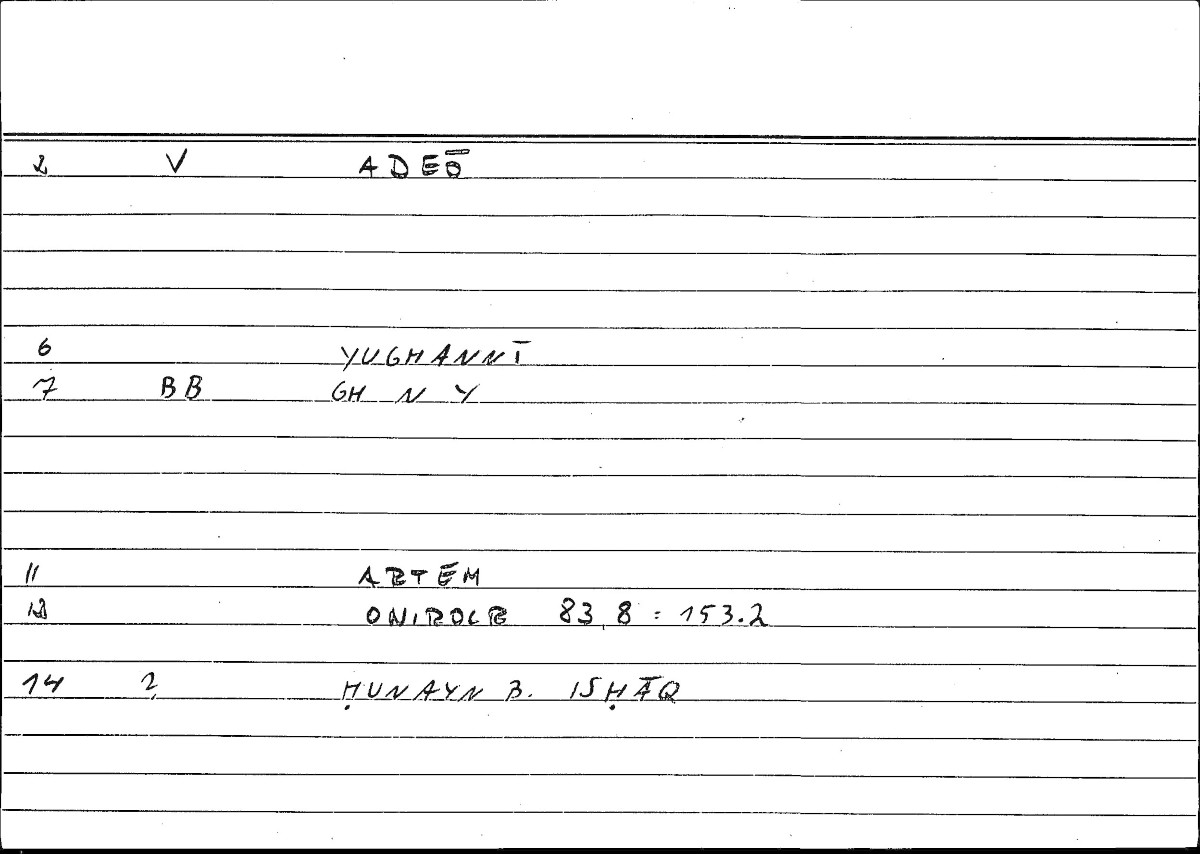 2 V ADEŌ
6 YUGHANNĪ
7 BB GH N Y
11 ARTĒM
12 ONIROCR 83,8 : 153.2
14 2 ḤUNAYN B. ISḤĀQ